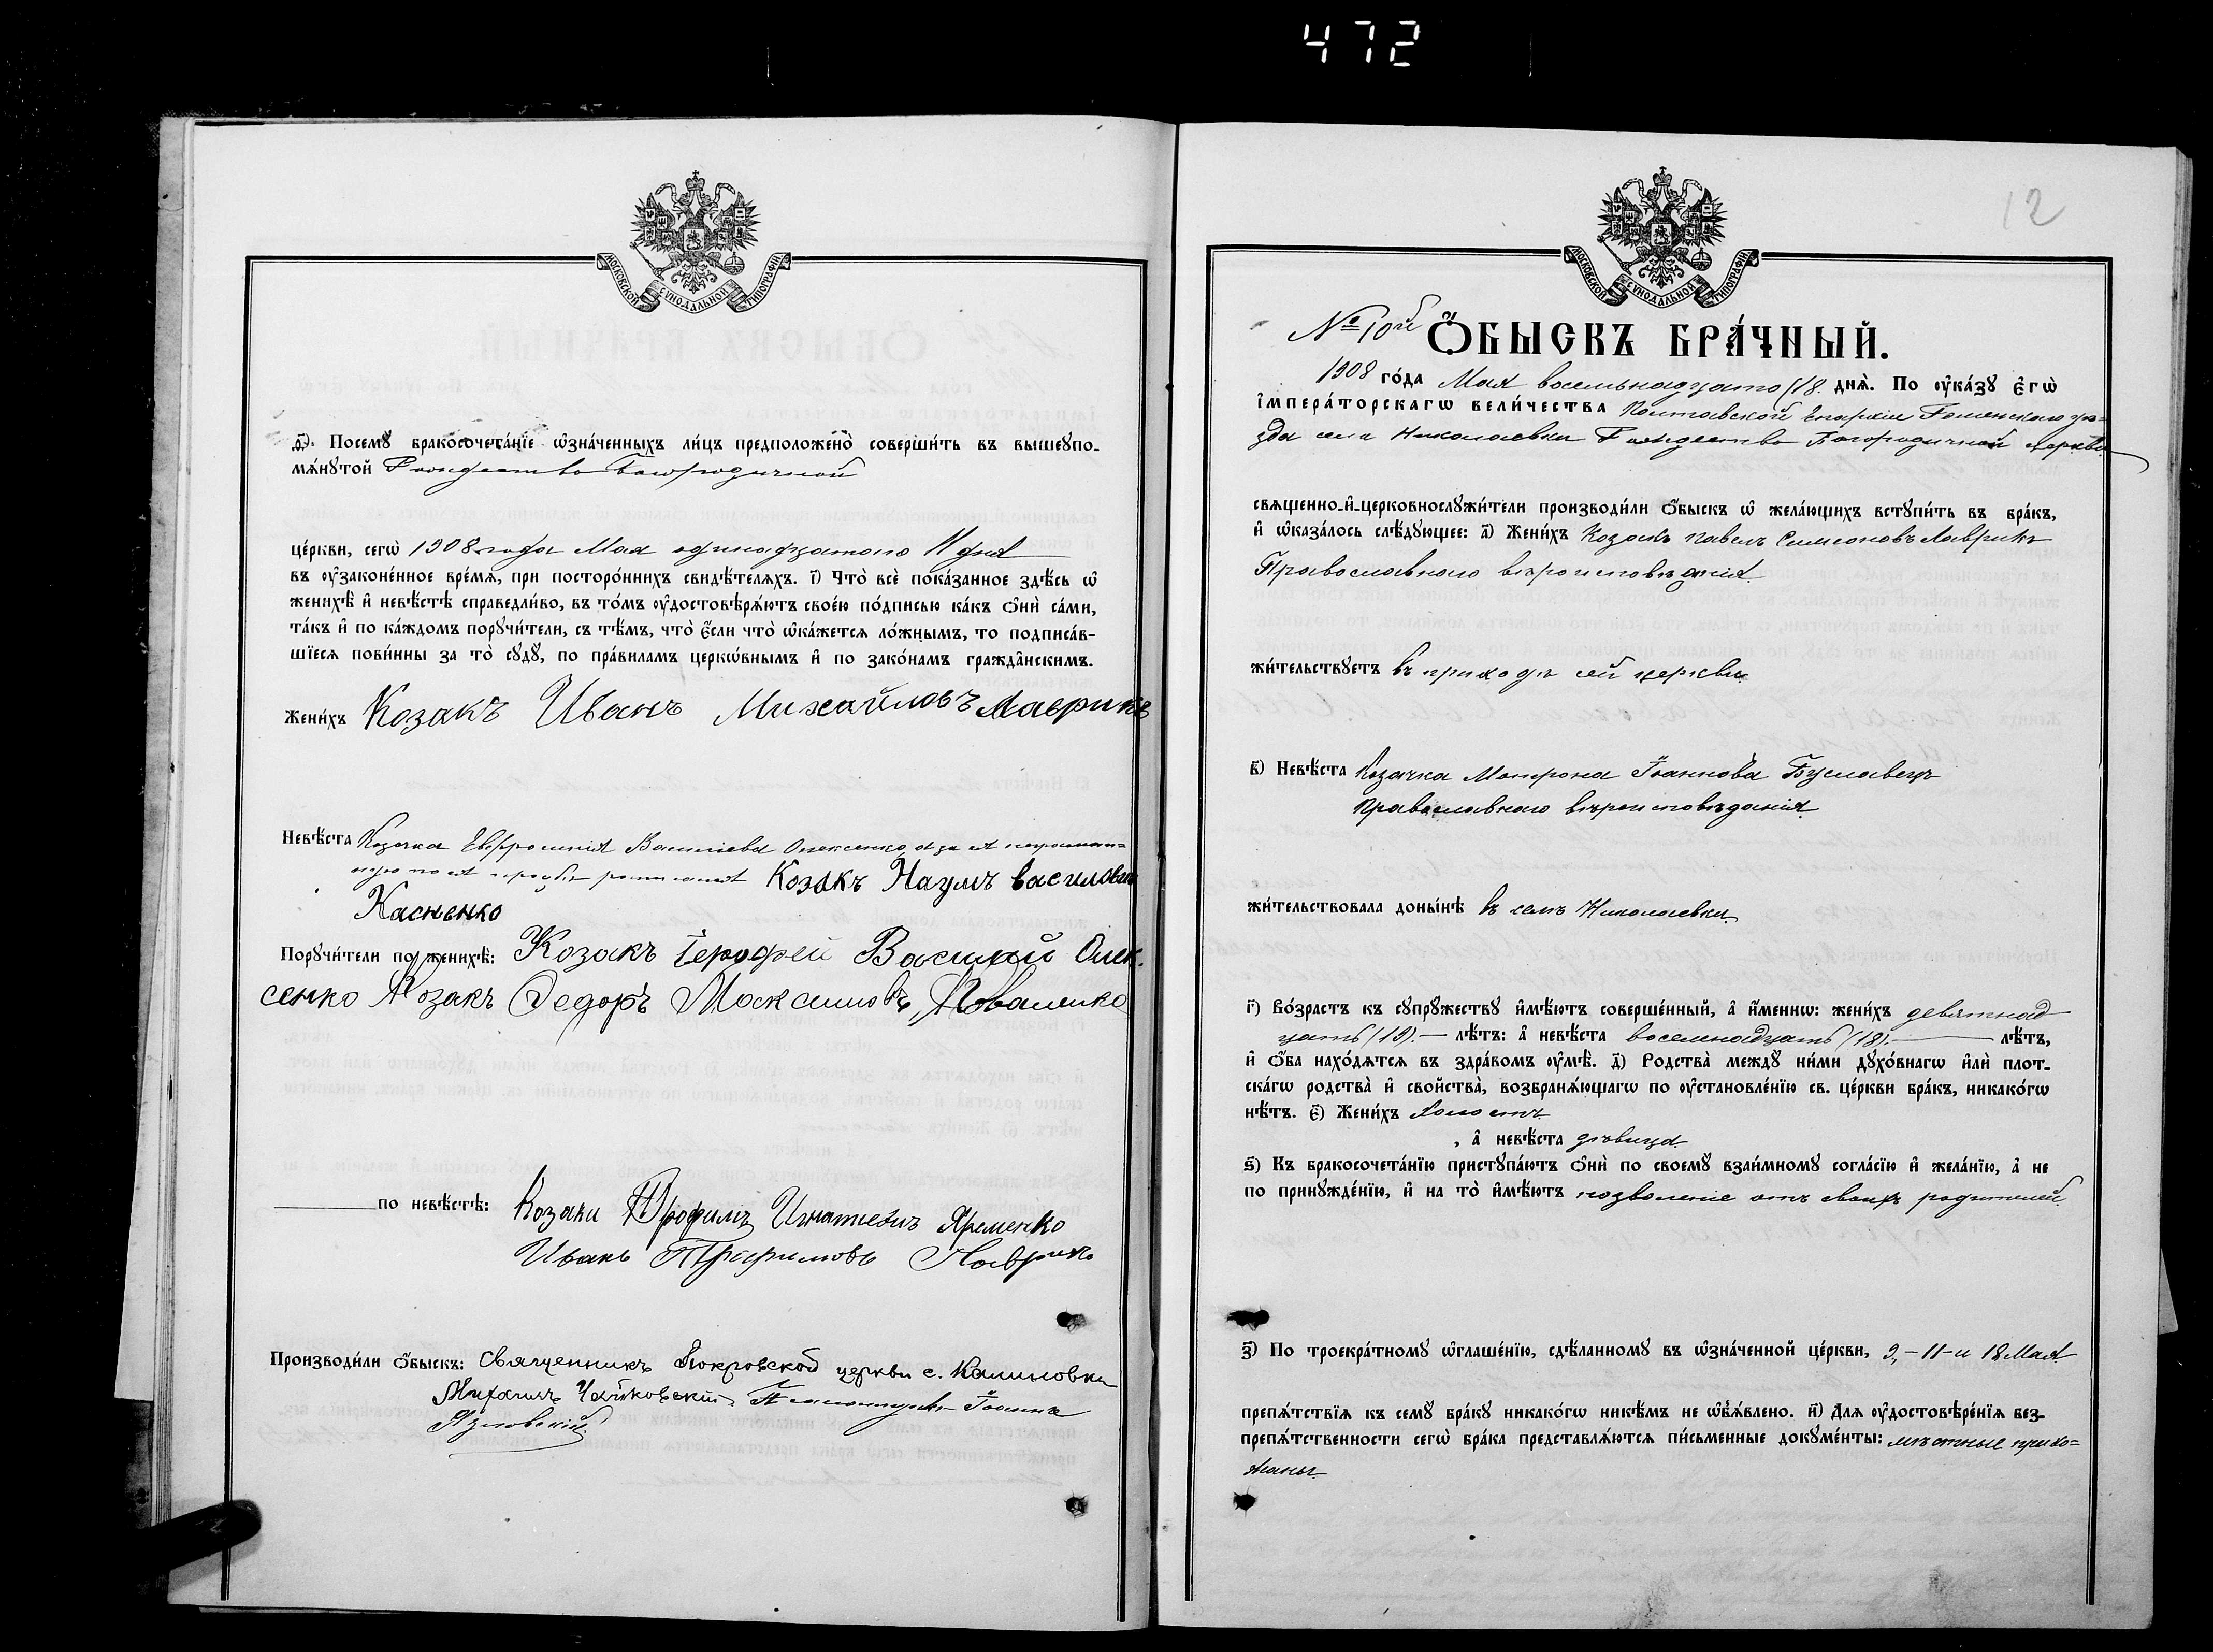 472
МОСКОВСКОЙ СѴНОДАЛЬНОЙ ТИПОГРАФІИ
ѳ҃і) Посемꙋ̀ бракосочета́нїе ѡ҆зна́ченныхъ ли́цъ предположено̀ соверши́ть въ вышеꙋпо-
мѧ́нꙋтой Рождество Богородичной
це́ркви, сегѡ̀ 1908 года Мая одинадцатого 11 дня
въ ᲂу҆зако́ненное вре́мѧ, при посторо́ннихъ свидѣ́телѧхъ. і҃) Что̀ всѐ пока́занное здѣ́сь ѡ҆
женихѣ̀ и҆ невѣ́стѣ справедли́во, въ то́мъ ᲂу҆достовѣрѧ́ютъ свое́ю по́дписью ка́къ ѻ҆нѝ са́ми,
та́къ и҆ по ка́ждомъ порꙋчи́тели, съ тѣ́мъ, что̀ є҆́сли что̀ ѡ҆ка́жетсѧ ло́жнымъ, то подписа́в-
шїесѧ пови́нны за то̀ сꙋдꙋ̀, по пра́виламъ церкѡ́внымъ и҆ по зако́намъ гражда̑нскимъ.
Жени́хъ Козакъ Иванъ Михайловъ Лаврикъ
Невѣ́ста Козачка Евфросинія Василіева Олексенко, а за ея неграмот=
ную по ея просьбѣ росписался Козакъ Наумъ Василовичъ
Касненко
Порꙋчи́тели по женихѣ̀: Козакъ Іерофей Василій Олек-
сенко Козакъ Федоръ Максимовъ Коваленко
по невѣ́стѣ: Козаки Трофимъ Игнатіевъ Яременко
Иванъ Трафимовъ Лаврикъ
Производи́ли ѻ҆́быскъ: Священникъ Покровской церкви с. Калиновки
Михаилъ Чайковскій. Псаломщикъ Іоаннъ
12
МОСКОВСКОЙ СѴНОДАЛЬНОЙ ТИПОГРАФІИ
№ 10й Ѻ҆́БЫСКЪ БРА́ЧНЫЙ.
1908 го́да Мая восемьнадцато (18. днѧ̀. По ᲂу҆ка́зꙋ є҆гѡ̀
і҆мпера́торскагѡ вели́чества Полтавской Епархіи Роменскаго уѣ=
зда села Николаевки Рождество Богородичной церкви
свѧщенно-и҆-церковнослꙋжи́тели производи́ли ѻ҆́быскъ ѡ҆ жела́ющихъ встꙋпи́ть въ бра́къ,
и҆ ѡ҆каза́лось слѣ́дꙋющее: а҃) Жени́хъ Козакъ Павелъ Симеоновъ Лаврикъ
Православного вѣроисповѣданія
жи́тельствꙋетъ въ приходѣ сей церкви.
в҃) Невѣ́ста Козачка Матрона Іоаннова Буславецъ
Православного вѣроисповѣданія
жи́тельствовала доны́нѣ въ селѣ Николаевки.
г҃) Во́зрастъ къ сꙋпрꙋ́жествꙋ и҆мѣ́ютъ соверше́нный, а҆ и҆́меннѡ: жени́хъ девятнад
цать (19).— лѣ́тъ: а҆ невѣ́ста восемнадцать (18).— лѣ́тъ,
и҆ ѻ҆́ба нахо́дѧтсѧ въ здра́вомъ ᲂу҆мѣ̀. д҃) Родства̀ междꙋ̀ ни́ми дꙋхо́внагѡ и҆лѝ плот-
ска́гѡ родства̀ и҆ свойства̀, возбранѧ́ющагѡ по ᲂу҆становле́нїю св. це́ркви бра́къ, никако́гѡ
нѣ́тъ. є҃) Жени́хъ холостъ
, а҆ невѣ́ста дѣвица.
ѕ҃) Къ бракосочета́нїю пристꙋпа́ютъ ѻ҆нѝ по своемꙋ̀ взаи́мномꙋ согла́сїю и҆ жела́нїю, а҆ не
по принꙋжде́нїю, и҆ на то̀ и҆мѣ́ютъ позволеніе отъ своихъ родителей.
з҃) По троекра́тномꙋ ѡ҆глаше́нїю, сдѣ́ланномꙋ въ ѡ҆зна́ченной це́ркви, 9,-11-и 18 Мая.
препѧ́тствїѧ къ семꙋ̀ бра́кꙋ никако́гѡ никѣ́мъ не ѡ҆б̾ѧ́влено. и҃) Длѧ ᲂу҆достовѣре́нїѧ без-
препѧ́тственности сегѡ̀ бра́ка представлѧ́ютсѧ пи́сьменные докꙋме́нты: мѣстные прихо=
жаны.